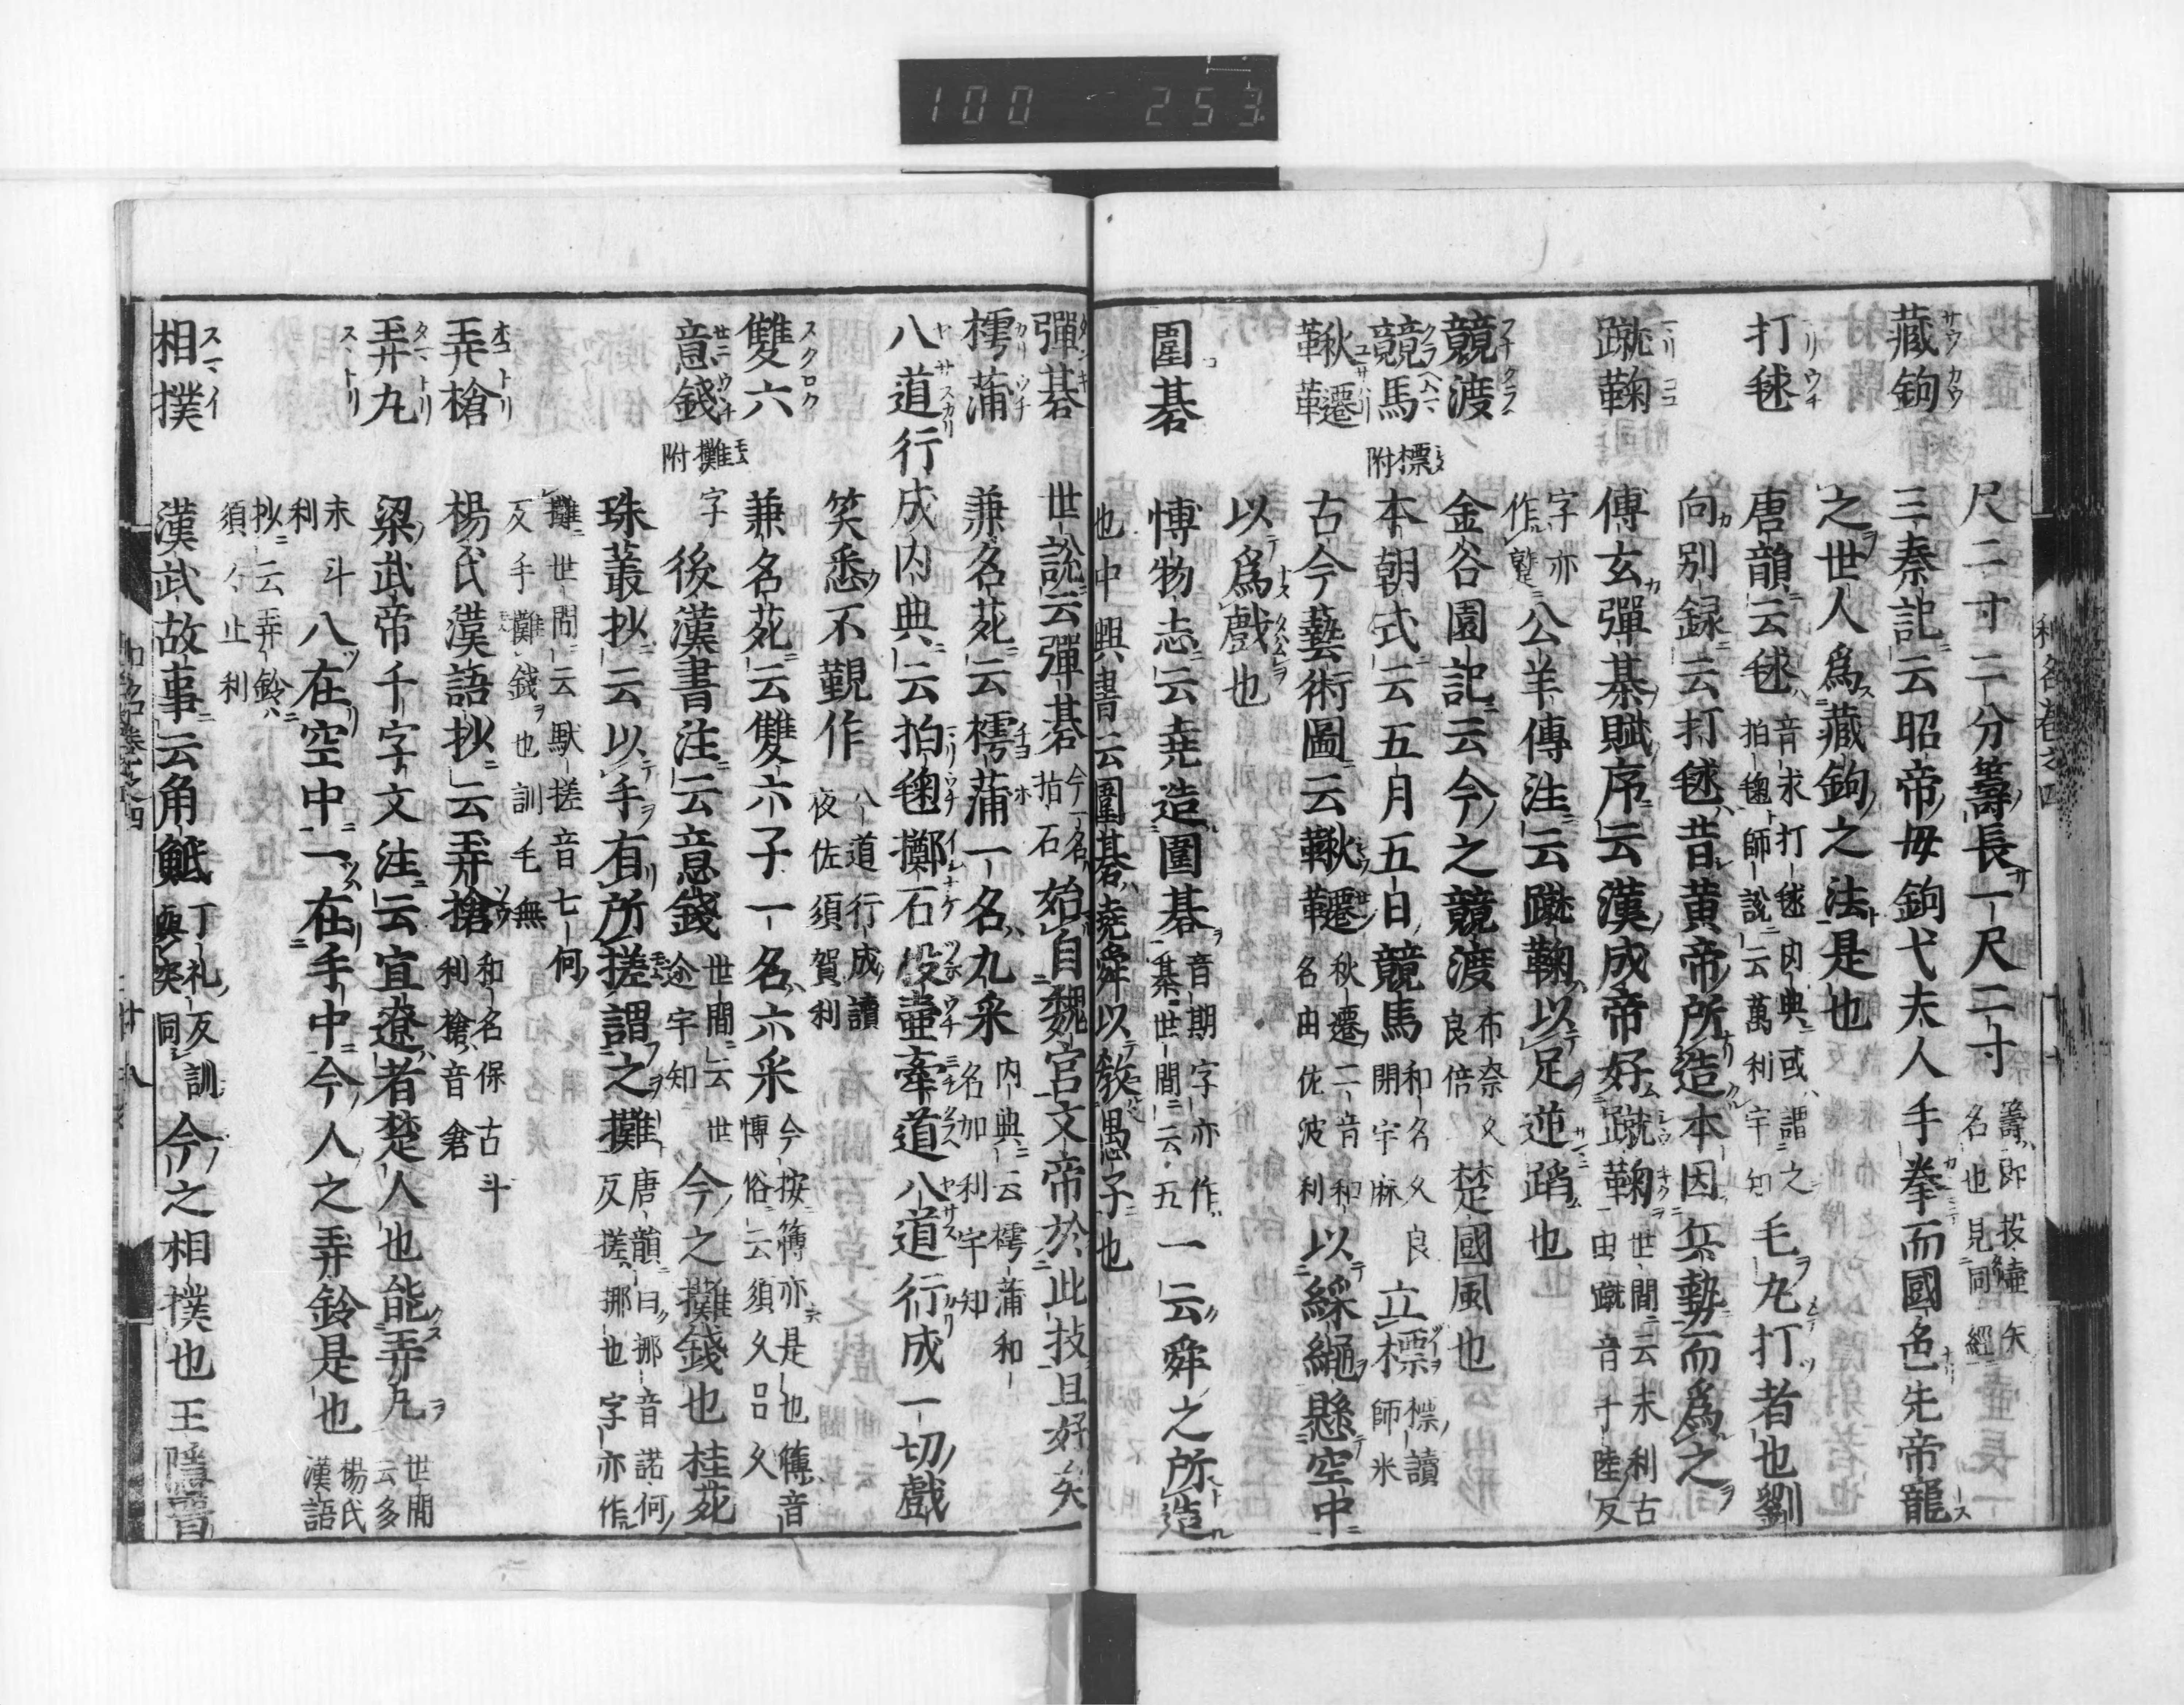 100 253
尺二寸二分籌長一尺二寸 籌即投壺矢名也見同經
藏鉤 三秦記云昭帝母鉤弋夫人手拳而國色先帝寵
之世人爲藏鉤之法是也
打毬 唐韻云毬 音求打毬内典或謂之拍毱師説云萬利宇知 毛丸打者也劉
向別録云打毬昔黄帝所造本因兵勢而爲之
蹴鞠 傳玄彈棊賦序云漢成帝好蹴鞠 世間云末利古由蹴音千陸反
字亦作 公羊傳注云蹴鞠以足逆蹈也
競渡 金谷園記云今之競渡 布奈久良倍 楚國風也
競馬 標附 本朝式云五月五日競馬 和名久良閇宇麻 立標 標讀師米
鞦韆 古今藝術圖云鞦韆 秋遷二音和名由佐波利 以綵繩懸空中
以爲戲也
圍碁 博物志云堯造圍碁 音期字亦作棊世間云五 一云舜之所造
也中興書云圍碁堯舜以教愚子也
彈碁 世説云彈碁 今名拈石 始自魏宮文帝於此技且好矣
樗蒲 兼名苑云樗蒲一名九采 内典云樗蒲和名加利宇知
八道行成 内典云拍毱擲石投壺牽道八道行成一切戲
笑悉不觀作 八道行成讀夜佐須賀利
雙六 兼名苑云雙六子一名六采 今按簿亦是也簿音博俗云須久呂久
意錢 攤附 字 後漢書注云意錢 世間云世迩宇知 今之攤錢也桂苑
珠叢抄云以手有所搓謂之攤 唐韻曰挪音諾何反搓挪也字亦作
攤世間云 搓音七何反手攤錢也訓毛無
弄槍 楊氏漢語抄云弄槍 和名保古斗利槍音倉
弄丸 梁武帝千字文注云宜遼者楚人也能弄丸 世間云多
末斗利 八在空中一在手中今人之弄鈴是也 楊氏漢語
抄云弄鈴須々止利
相撲 漢武故事云角觝 丁礼反訓與突同 今之相撲也王隱晋